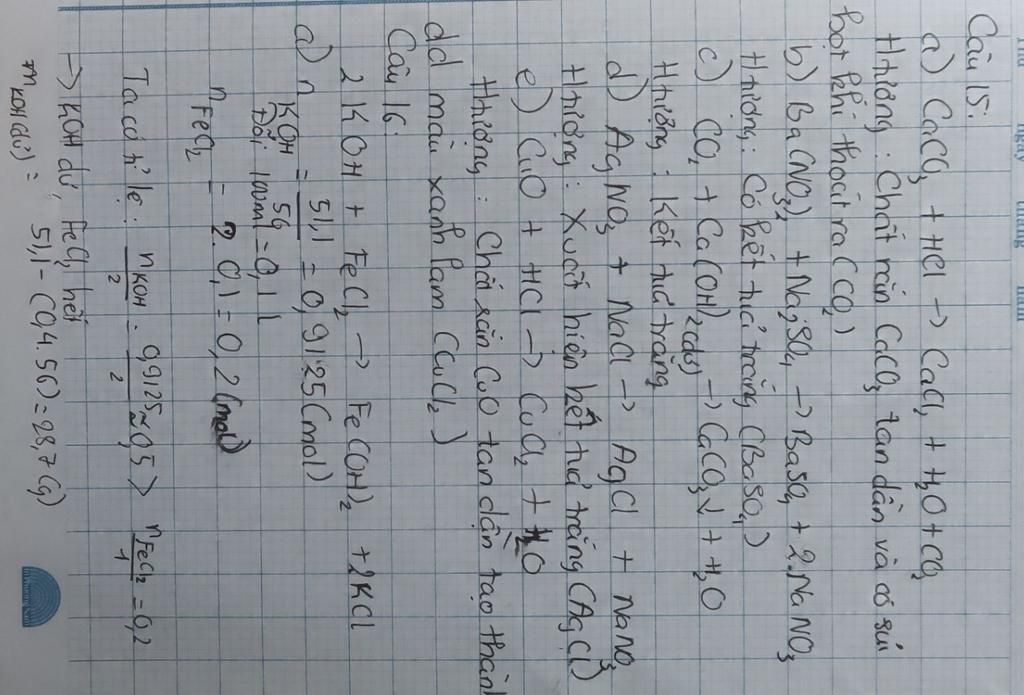 Câu 15:
a) CaCO3 + HCl → CaCl2 + H2O + CO2
Htượng: Chất rắn CaCO3 tan dần và có sủi
bọt khí thoát ra (CO2)
b) Ba(NO3)2 + Na2SO4 → BaSO4 + 2.NaNO3
Htượng: Có kết tủa trắng (BaSO4)
c) CO2 + Ca(OH)2 (dư) → CaCO3↓ + H2O
Htượng: Kết tủa trắng
d) AgNO3 + NaCl → AgCl + NaNO3
Htượng: Xuất hiện kết tủa trắng (AgCl)
e) CuO + HCl → CuCl2 + H2O
Htượng: Chất rắn CuO tan dần tạo thành
dd màu xanh lam (CuCl2)
Câu 16:
2 KOH + FeCl2 → Fe(OH)2 + 2KCl
a) nKOH = 51,1 / 56 = 0,9125 (mol)
Đổi 100ml = 0,1 l
nFeCl2 = 2.0,1 = 0,2 (mol)
Ta có tỉ lệ: nKOH / 2 . 0,9125 / 2 ≈ 0,5 > nFeCl2 / 1 = 0,2
→ KOH dư, FeCl2 hết
mKOH(dư) = 51,1 - (0,4.56) = 28,7 (g)